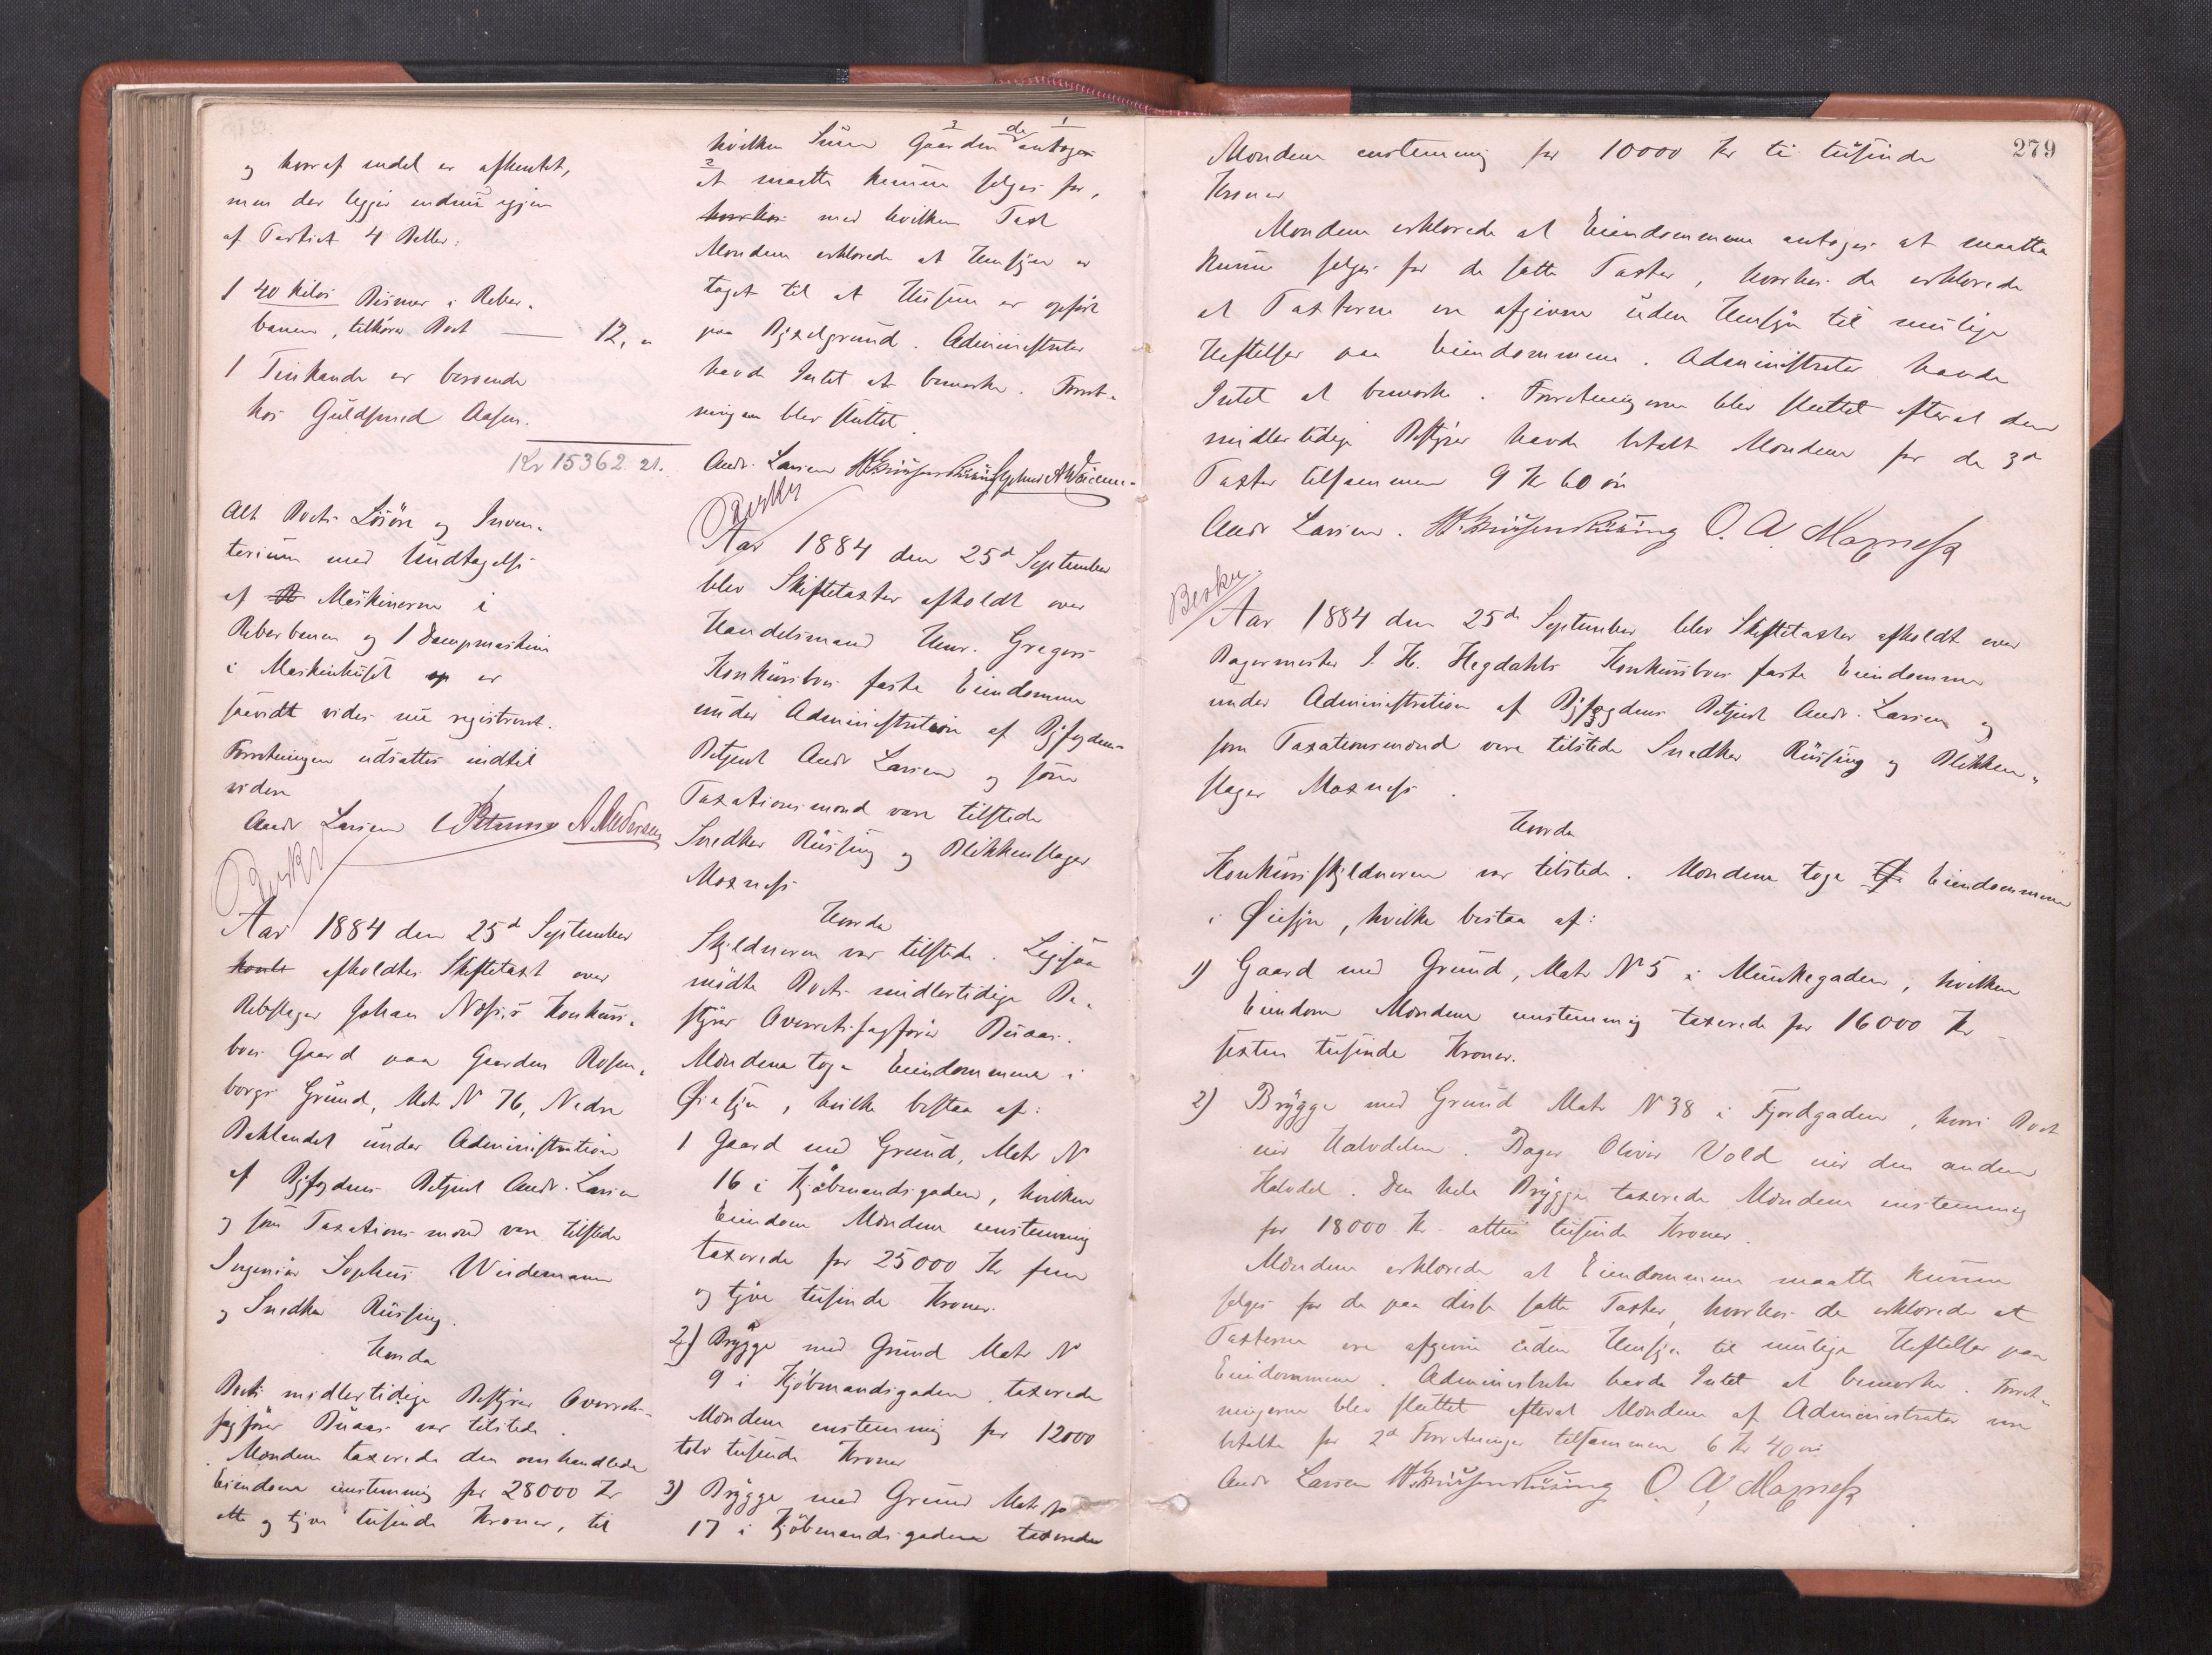 og hvoraf endel er afhentet,
men der ligger endnu igjen
af Partiet 4 Baller.
1 40 Kilos Bismer i Reber-
banen, tilhører Boet — 12, "
1 Tinkande er beroende
hos Guldsmed Aasen.
Kr 15362. 21.
Alt Boets Løsøre og Inven-
tarium med Undtagelse
af Maskinerne i
Reberbanen og 1 Dampmaskine
i Maskinhuset er
saavidt vides nu registreret.
Forretningen udsattes indtil
videre
Andr Larsen Petersen A. Andersen
Beskr
Aar 1884 den 25d September
afholdtes Skiftetaxt over
Rebslager Johan Nøss's Konkurs-
boes Gaard paa Gaarden Rosen-
borgs Grund, Mat N 76, Nedre
Baklandet under Administration
af Byfogdens Betjent Andr. Larsen
og som Taxationsmænd vare tilstede
Ingeniør Sophus Weidemann
og Snedker Rüssing.
Hvorda
Boets midlertidige Bestyrer Overrets-
sagfører Buaas var tilstede.
Mændene taxerede den omhandlede
Eiendom enstemmig for 28000 Kr
otte og tyve tusinde Kroner, til
hvilken Sum Gaarden de antager
at maatte kunne sælges for,
hvorhos med hvilken Taxt
Mændene erklærede at Hensyn er
taget til at Husene er opført
paa Bygselgrund. Administrator
havde Intet at bemærke. Forret-
ningen blev sluttet.
Andr. Larsen Rüssing Sophus A Weidemann
Beskr
Aar 1884 den 25d September
blev Skiftetaxter afholdt over
Handelsmand Henr. Gregers
Konkursboes faste Eiendomme
under Administration af Byfogdens
Betjent Andr Larsen og som
Taxationsmænd vare tilstede
Snedker Rüssing og Blikkenslager
Moxness
Hvorda
Skyldneren var tilstede. Ligesaa
mødte Boets midlertidige Be-
styrer Overretssagfører Buaas.
Mændene toge Eiendommene i
Øiesyn, hvilke bestaa af:
1 Gaard med Grund, Matr N
16 i Kjøbmandsgaden, hvilken
Eiendom Mændene enstemmig
taxerede for 25000 Kr fem
og tyve tusinde Kroner.
2) Brygge med Grund Matr N
9 i Kjøbmandsgaden taxerede
Mændene enstemmig for 12000
tolv tusinde Kroner
3) Brygge med Grund Matr N
17 i Kjøbmandsgaden taxerede
279
Mændene enstemmig for 10000 Kr ti tusinde
Kroner
Mændene erklærede at Eiendommene antages at maatte
kunne sælges for de satte Taxter, hvorhos de erklærede
at Taxterne ere afgivne uden Hensyn til mulige
Heftelser paa Eiendommene. Administrator havde
Intet at bemærke. Forretningerne blev sluttet efterat den
midlertidige Bestyrer havde betalt Mændene for de 3de
Taxter tilsammen 9 Kr 60 øre
Andr Larsen. Rüssing O. A. Moxness
Beskr.
Aar 1884 den 25de September blev Skiftetaxter afholdt over
Bagermester J. H. Hegdahls Konkursboes faste Eiendomme
under Administration af Byfogdens Betjent Andr. Larsen og
som Taxationsmænd vare tilstede Snedker Rüssing og Blikken-
slager Moxness.
Hvorda
Konkursskyldneren var tilstede. Mændene toge Eiendommene
i Øiesyn, hvilke bestaa af:
1) Gaard med Grund, Matr N 5 i Munkegaden, hvilken
Eiendom Mændene enstemmig taxerede for 16000 Kr
sexten tusinde Kroner.
2) Brygge med Grund Matr N 38 i Fjordgaden, hvori Boet
eier Halvdelen. Bager Oliver Vold eier den anden
Halvdel. Den hele Brygge taxerede Mændene enstemmig
for 18000 Kr - atten tusinde Kroner.
Mændene erklærede at Eiendommene maatte kunne
sælges for de paa disse satte Taxter, hvorhos de erklærede at
Taxterne ere afgivne uden Hensyn til mulige Heftelser paa
Eiendommene. Administrator havde Intet at bemærke. Forret-
ningerne blev sluttet efterat Mændene af Administrator vare
betalte for 2de Forretninger tilsammen 6 Kr 40 øre
Andr Larsen Rüssing O. A. Moxness